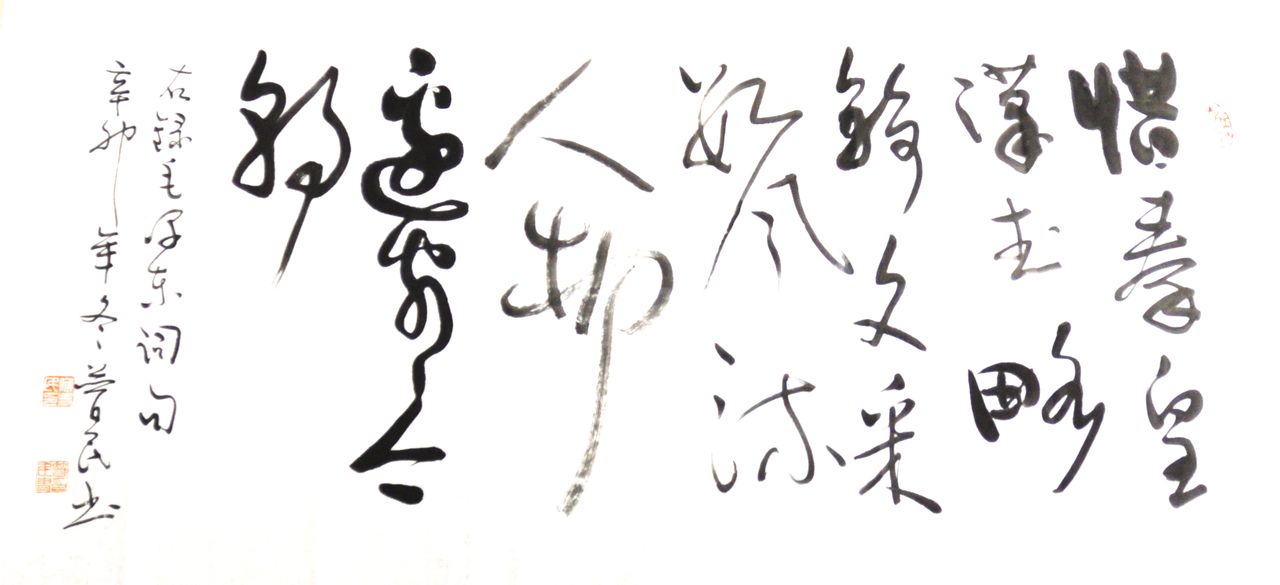 惜秦皇
漢武略
输文采
数风流
人物
還看今
朝
右録毛泽东词句
辛卯年冬民书